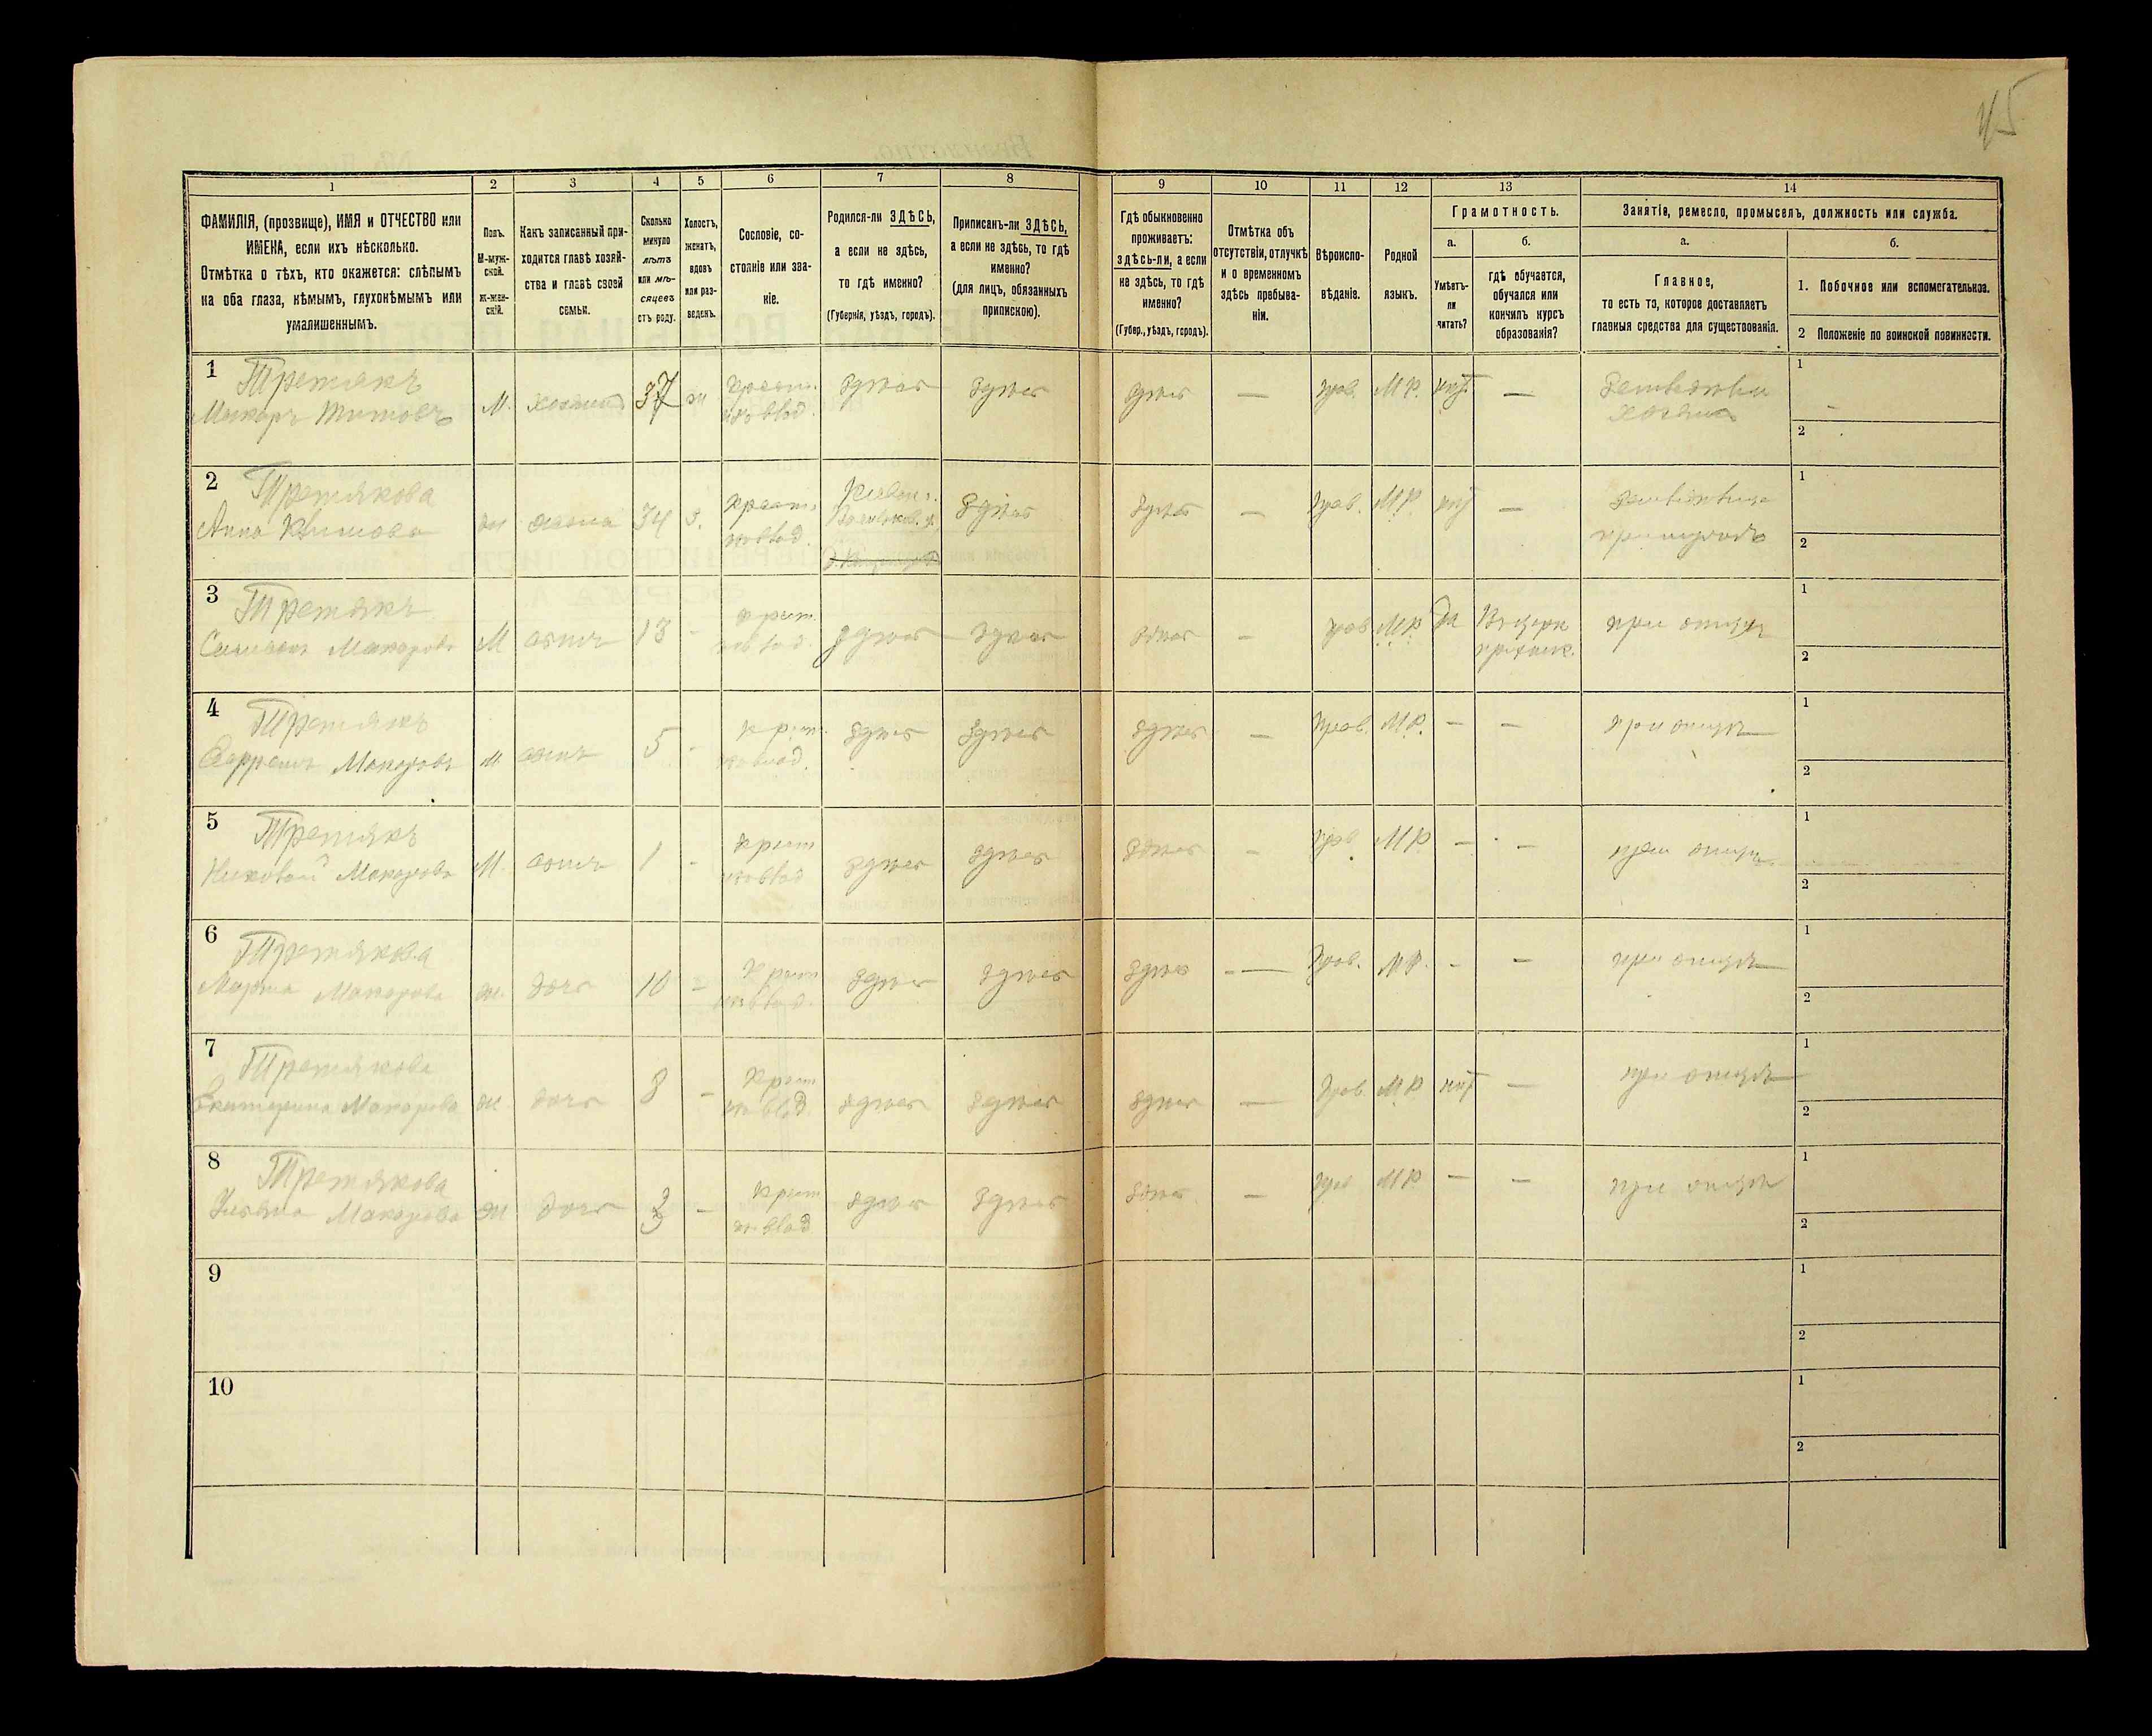 45
1
2
3
4
5
6
7
8
9
10
11
12
13
14
ФАМИЛІЯ, (прозвище), ИМЯ и ОТЧЕСТВО или
ИМЕНА, если ихъ нѣсколько.
Отмѣтка о тѣхъ, кто окажется: слѣпымъ
на оба глаза, нѣмымъ, глухонѣмымъ или
умалишеннымъ.
Полъ.
М-муж-
ской.
Ж-жен-
скій.
Какъ записанный при-
ходится главѣ хозяй-
ства и главѣ своей
семьи.
Сколько
минуло
лѣтъ
или мѣ-
сяцевъ
отъ роду.
Холостъ,
женатъ,
вдовъ
или раз-
веденъ.
Сословіе, со-
стояніе или зва-
ніе.
Родился-ли ЗДѢСЬ,
а если не здѣсь,
то гдѣ именно?
(Губернія, уѣздъ, городъ).
Приписанъ-ли ЗДѢСЬ,
а если не здѣсь, то гдѣ
именно?
(для лицъ, обязанныхъ
припискою).
Гдѣ обыкновенно
проживаетъ:
здѣсь-ли, а если
не здѣсь, то гдѣ
именно?
(Губер., уѣздъ, городъ).
Отмѣтка объ
отсутствіи, отлучкѣ
и о временномъ
здѣсь пребыва-
ніи.
Вѣроиспо-
вѣданіе.
Родной
языкъ.
Грамотность.
а.
Умѣетъ-
ли
читать?
б.
гдѣ обучается,
обучался или
кончилъ курсъ
образованія?
Занятіе, ремесло, промыселъ, должность или служба.
а.
Главное,
то есть то, которое доставляетъ
главныя средства для существованія.
б.
1. Побочное или вспомогательное.
2 Положеніе по воинской повинности.
1
Третякъ
Макаръ Титовъ
М. хозяинъ 37 ж
здѣсь здѣсь здѣсь — М.Р. нѣт —
хозяинъ
1
2
2
Третякова
Анна
ж жена 34 з.
Крест.
здѣсь здѣсь — Прав. М.Р. нѣт —
1
2
3
Третякъ
Макаровъ
М сынъ 13 -
здѣсь здѣсь здѣсь — прав М.Р. Да
при отцѣ
1
2
4
Третякъ
Макаровъ
м. сынъ 5 -
здѣсь здѣсь здѣсь — Прав. М.Р. — —
при отцѣ
1
2
5
Третякъ
Николай Макаровъ
М. сынъ 1 -
Крест
здѣсь здѣсь здѣсь — Прав М.Р. — —
при отцѣ
1
2
6
Третякова
Марѳа Макарова
ж. дочь 10 -
здѣсь здѣсь здѣсь — Прав. М.Р. — —
при отцѣ
1
2
7
Третякова
Екатерина Макарова
ж. дочь 8 -
Крест
здѣсь здѣсь здѣсь — Прав М.Р. нѣт —
при отцѣ
1
2
8
Третякова
Ульяна Макарова
ж дочь 3 —
Крест
здѣсь здѣсь здѣсь — Прав М.Р. — —
при отцѣ
1
2
9
1
2
10
1
2